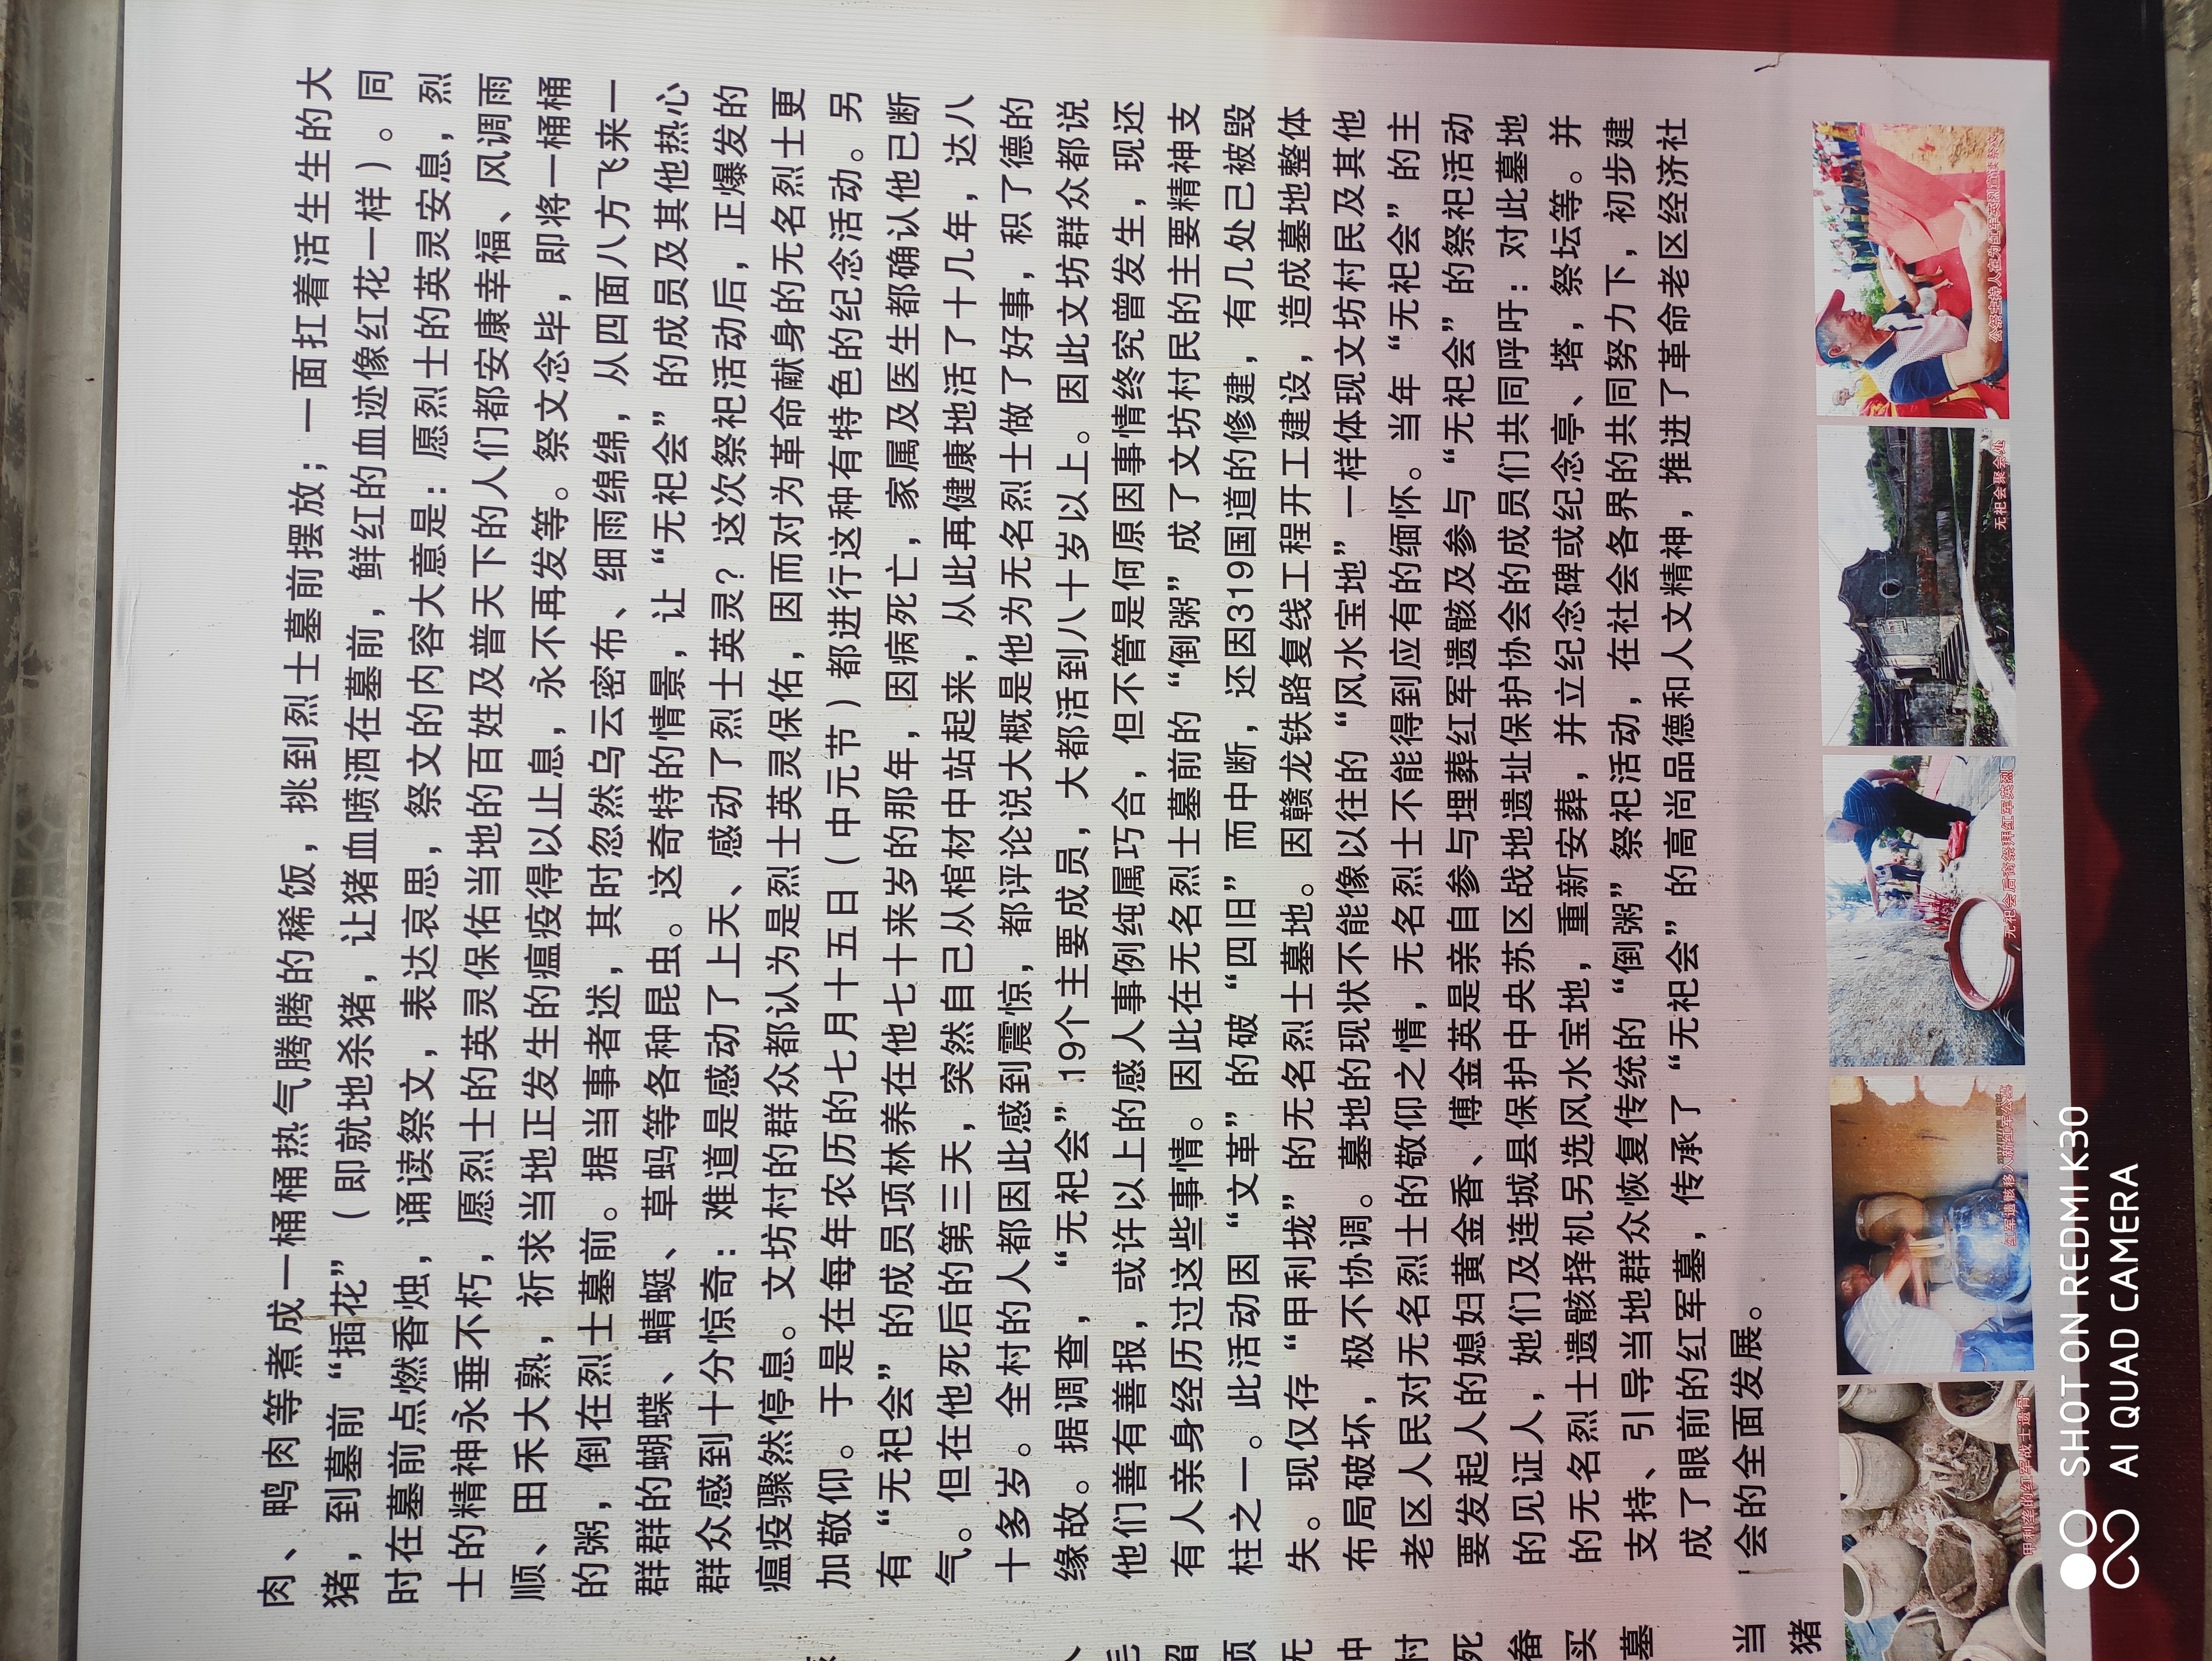 肉、鸭肉等煮成一桶桶热气腾腾的稀饭，挑到烈士墓前摆放；一面扛着活生生的大
猪，到墓前“插花”（即就地杀猪，让猪血喷洒在墓前，鲜红的血迹像红花一样）。同
时在墓前点燃香烛，诵读祭文，表达哀思，祭文的内容大意是：愿烈士的英灵安息，烈
士的精神永垂不朽，愿烈士的英灵保佑当地的百姓及普天下的人们都安康幸福、风调雨
顺、田禾大熟，祈求当地正发生的瘟疫得以止息，永不再发等。祭文念毕，即将一桶桶
的粥，倒在烈士墓前。据当事者述，其时忽然乌云密布、细雨绵绵，从四面八方飞来一
群群的蝴蝶、蜻蜓、草蚂等各种昆虫。这奇特的情景，让“无祀会”的成员及其他热心
群众感到十分惊奇：难道是感动了上天、感动了烈士英灵？这次祭祀活动后，正爆发的
瘟疫骤然停息。文坊村的群众都认为是烈士英灵保佑，因而对为革命献身的无名烈士更
加敬仰。于是在每年农历的七月十五日（中元节）都进行这种有特色的纪念活动。另
有“无祀会”的成员项林养在他七十来岁的那年，因病死亡，家属及医生都确认他已断
气。但在他死后的第三天，突然自己从棺材中站起来，从此再健康地活了十几年，达八
十多岁。全村的人都因此感到震惊，都评论说大概是他为无名烈士做了好事，积了德的
缘故。据调查，“无祀会”19个主要成员，大都活到八十岁以上。因此文坊群众都说
他们善有善报，或许以上的感人事例纯属巧合，但不管是何原因事情终究曾发生，现还
有人亲身经历过这些事情。因此在无名烈士墓前的“倒粥”成了文坊村民的主要精神支
柱之一。此活动因“文革”的破“四旧”而中断，还因319国道的修建，有几处已被毁
失。现仅存“甲利垅”的无名烈士墓地。因赣龙铁路复线工程开工建设，造成墓地整体
布局破坏，极不协调。墓地的现状不能像以往的“风水宝地”一样体现文坊村民及其他
老区人民对无名烈士的敬仰之情，无名烈士不能得到应有的缅怀。当年“无祀会”的主
要发起人的媳妇黄金香、傅金英是亲自参与埋葬红军遗骸及参与“无祀会”的祭祀活动
的见证人，她们及连城县保护中央苏区战地遗址保护协会的成员们共同呼吁：对此墓地
的无名烈士遗骸择机另选风水宝地，重新安葬，并立纪念碑或纪念亭、塔，祭坛等。并
支持、引导当地群众恢复传统的“倒粥”祭祀活动，在社会各界的共同努力下，初步建
成了眼前的红军墓，传承了“无祀会”的高尚品德和人文精神，推进了革命老区经济社
会的全面发展。
甲利垄的红军战士遗骨
红军遗骸移入新红军公墓
无祀会后裔祭拜红军英烈
无祀会聚会处
公祭主持人在为红军英烈宣读祭文
毛
留
项
无
冲
村
死
畚
买
墓
当
猪
SHOT ON REDMI K30
AI QUAD CAMERA